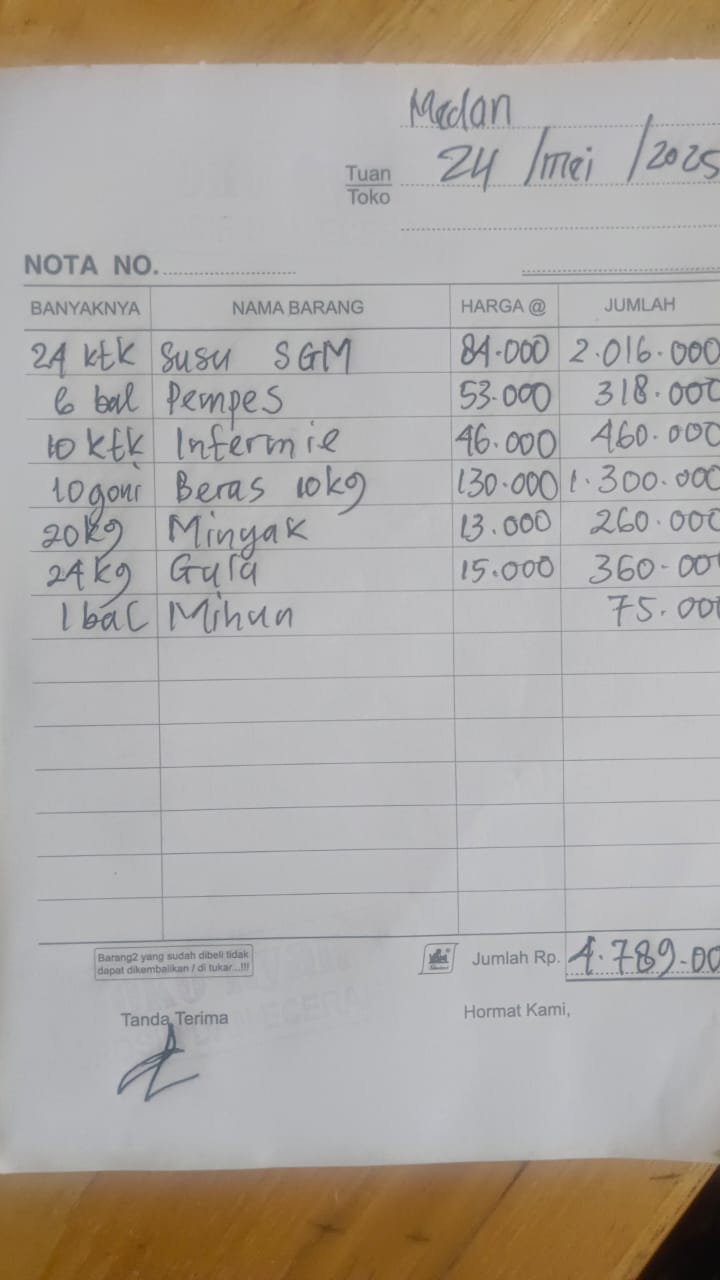 Medan
Tuan 24 / mei / 2025
Toko
NOTA NO.
BANYAKNYA NAMA BARANG HARGA @ JUMLAH
24 ktk Susu SGM 84.000 2.016.000
6 bal Pempes 53.000 318.000
10 ktk Infermie 46.000 460.000
10 goni Beras 10kg 130.000 1.300.000
20kg Minyak 13.000 260.000
24 kg Gula 15.000 360-00
1 bal Mihun 75.00
Barang2 yang sudah dibeli tidak
dapat dikembalikan / di tukar...!!!
Jumlah Rp. 4.789-00
Tanda Terima Hormat Kami,